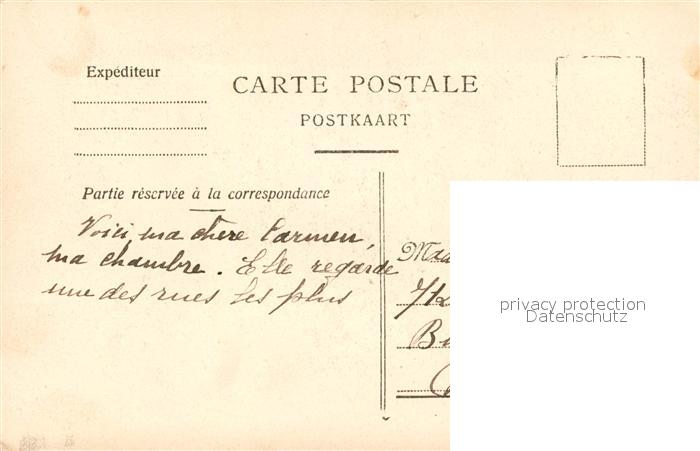 Expéditeur
CARTE POSTALE
POSTKAART
Partie réservée à la correspondance
Voici ma chère Carmen,
ma chambre. Elle regarde
une des rues les plus
privacy protection
Datenschutz